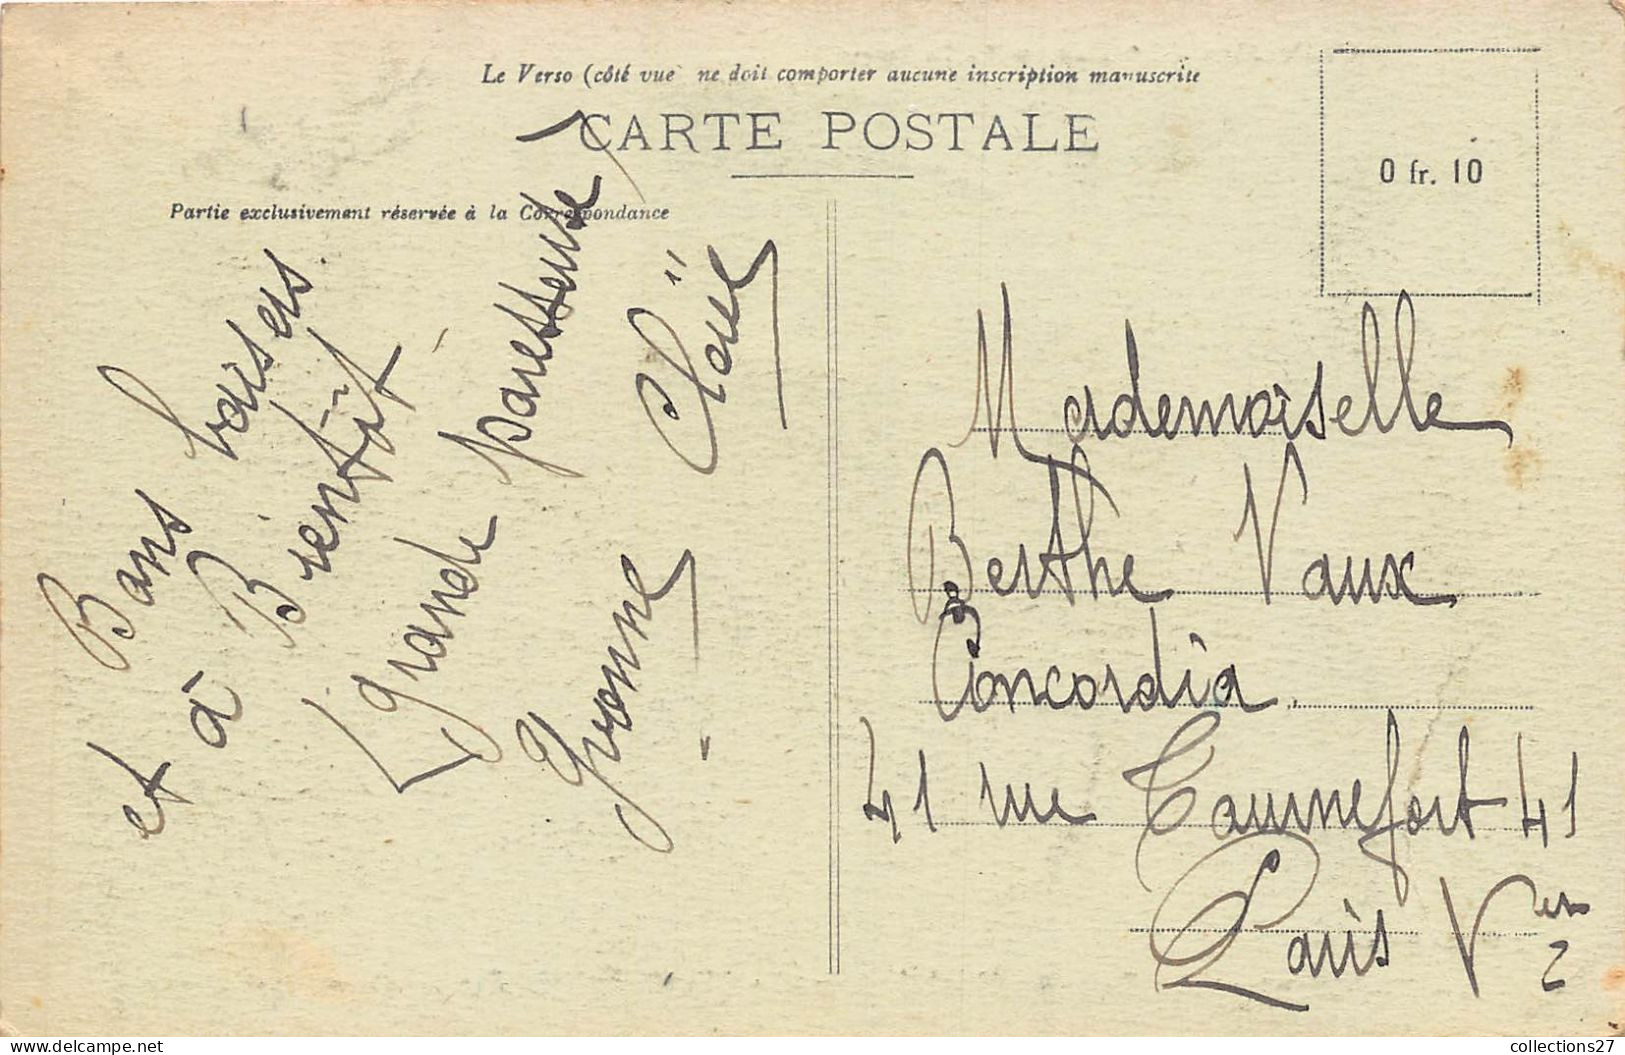 Le Verso (côté vue) ne doit comporter aucune inscription manuscrite
CARTE POSTALE
0 fr. 10
Partie exclusivement réservée à la Correspondance
Bons baisers
et à Bientôt
Grande paresseuse
Yvonne
Mademoiselle
Berthe Vaux
Concordia
41 rue Tournefort 41
Paris V
collections27